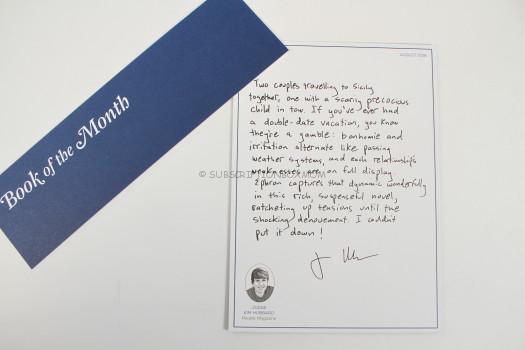 Book of the Month
AUGUST 2016
Two couples travelling to Sicily
together, one with a scarily precocious
child in tow. If you've ever had
a double-date vacation, you know
they're a gamble: bonhomie and
irritation alternate like passing
weather systems, and each relationship's
weaknesses are on full display.
Zphron captures that dynamic wonderfully
in this rich, suspenseful novel,
ratcheting up tensions until the
shocking denouement. I couldn't
put it down!
© SUBSCRIPTIONBOXMOM
JUDGE
KIM HUBBARD
People Magazine